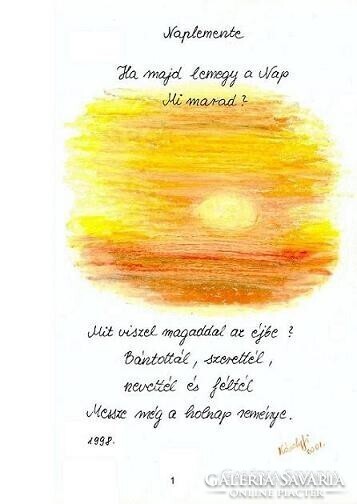 Naplemente
Ha majd lemegy a Nap
Mi marad?
Mit viszel magaddal az éjbe?
Bántottál, szerettél,
nevettél és féltél
Messze még a holnap reménye.
1998.
2001.
1
GALERIA SAVARIA
ONLINE PIACTÉR